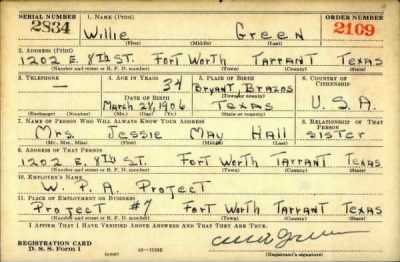 SERIAL NUMBER 1. NAME (Print) ORDER NUMBER
2834 Willie Green 2109
(First) (Middle) (Last)
2. ADDRESS (Print)
1202 E. 8th ST. Fort Worth Tarrant Texas
(Number and street or R. F. D. number) (Town) (County) (State)
3. TELEPHONE 4. AGE IN YEARS 5. PLACE OF BIRTH 6. COUNTRY OF CITIZENSHIP
— 34 Bryant, Brazos
DATE OF BIRTH (Town or county)
March 28, 1906 Texas U.S.A.
(Exchange) (Number) (Mo.) (Day) (Yr.) (State or country)
7. NAME OF PERSON WHO WILL ALWAYS KNOW YOUR ADDRESS 8. RELATIONSHIP OF THAT PERSON
Mrs. Jessie May Hall sister
(Mr., Mrs., Miss) (First) (Middle) (Last)
9. ADDRESS OF THAT PERSON
1202 E. 8th ST. Fort Worth Tarrant Texas
(Number and street or R. F. D. number) (Town) (County) (State)
10. EMPLOYER'S NAME
W. P. A. Project
11. PLACE OF EMPLOYMENT OR BUSINESS
Project #7 Fort Worth Tarrant Texas
(Number and street or R. F. D. number) (Town) (County) (State)
I AFFIRM THAT I HAVE VERIFIED ABOVE ANSWERS AND THAT THEY ARE TRUE.
REGISTRATION CARD
D. S. S. Form 1 (Registrant's signature)